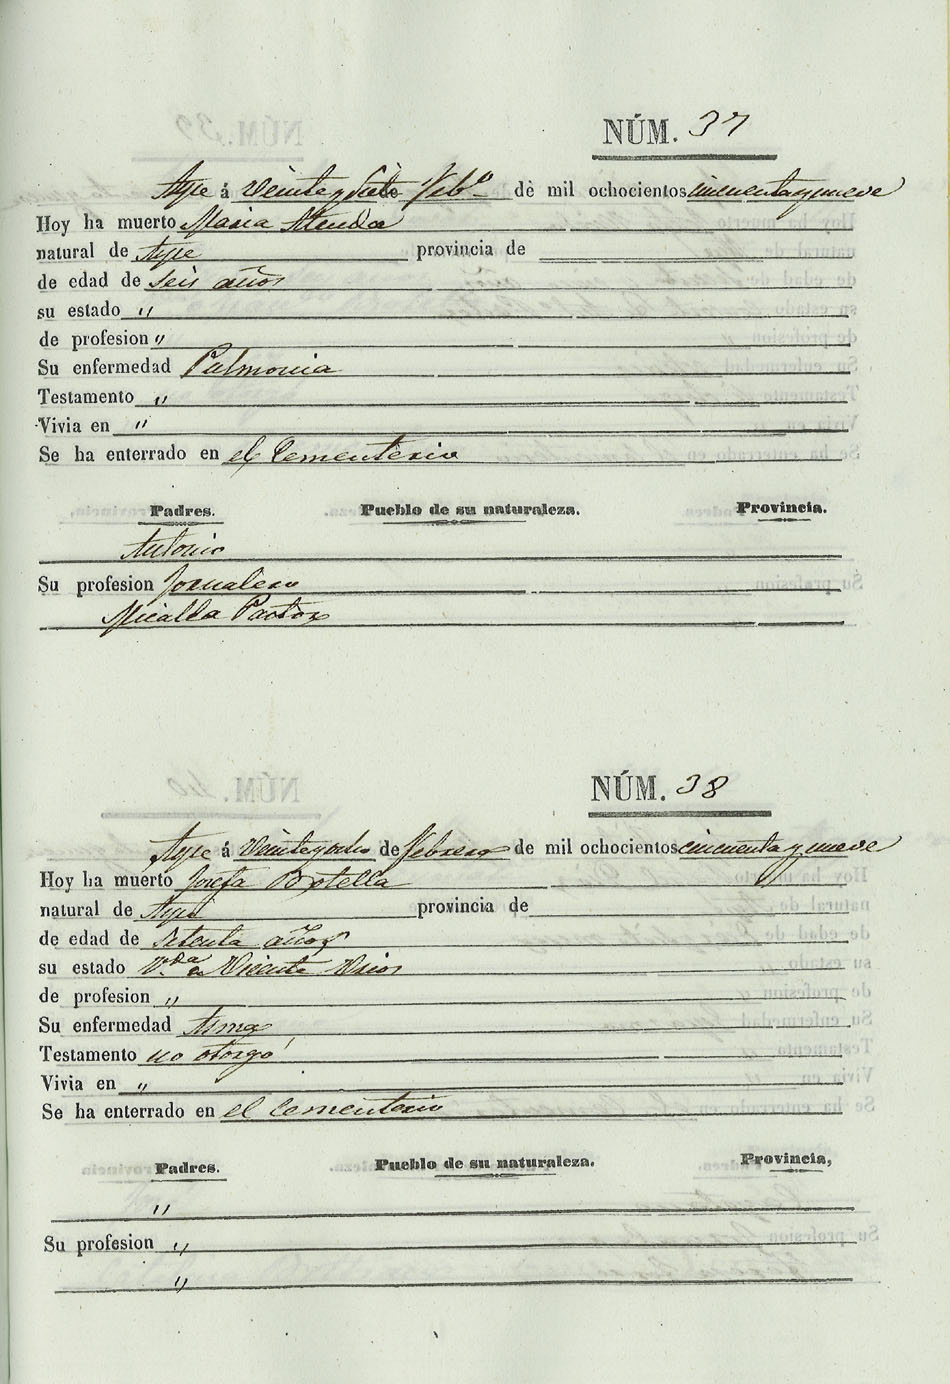 NÚM. 37
Aspe á Veinte y Siete de Feb.º de mil ochocientos cincuenta y nueve
Hoy ha muerto Maria Alenda
natural de Aspe provincia de
de edad de seis años
su estado "
de profesion "
Su enfermedad Pulmonia
Testamento "
Vivia en "
Se ha enterrado en el Cementerio
Padres. Pueblo de su naturaleza. Provincia.
Antonio
Su profesion Jornalero
Micalda Pastor
NÚM. 38
Aspe á Veinte y ocho de febrero de mil ochocientos cincuenta y nueve
Hoy ha muerto Josefa Botella
natural de Aspe provincia de
de edad de setenta años
su estado V.da de Vicente
de profesion "
Su enfermedad Asma
Testamento no otorgó
Vivia en "
Se ha enterrado en el cementerio
Padres. Pueblo de su naturaleza. Provincia,
"
Su profesion "
"